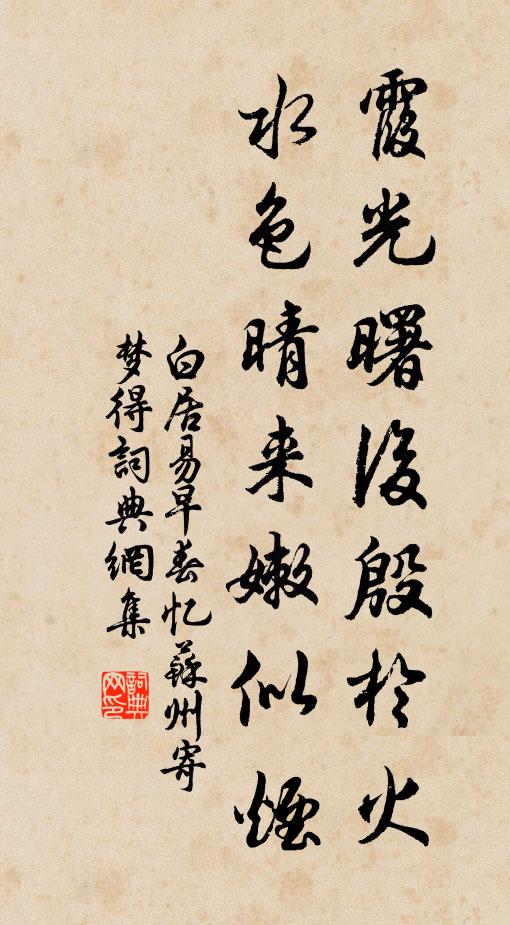 霞光曙後殷於火
水色晴来嫩似煙
白居易早春忆蘇州寄
梦得詞典網集
詞典
网印